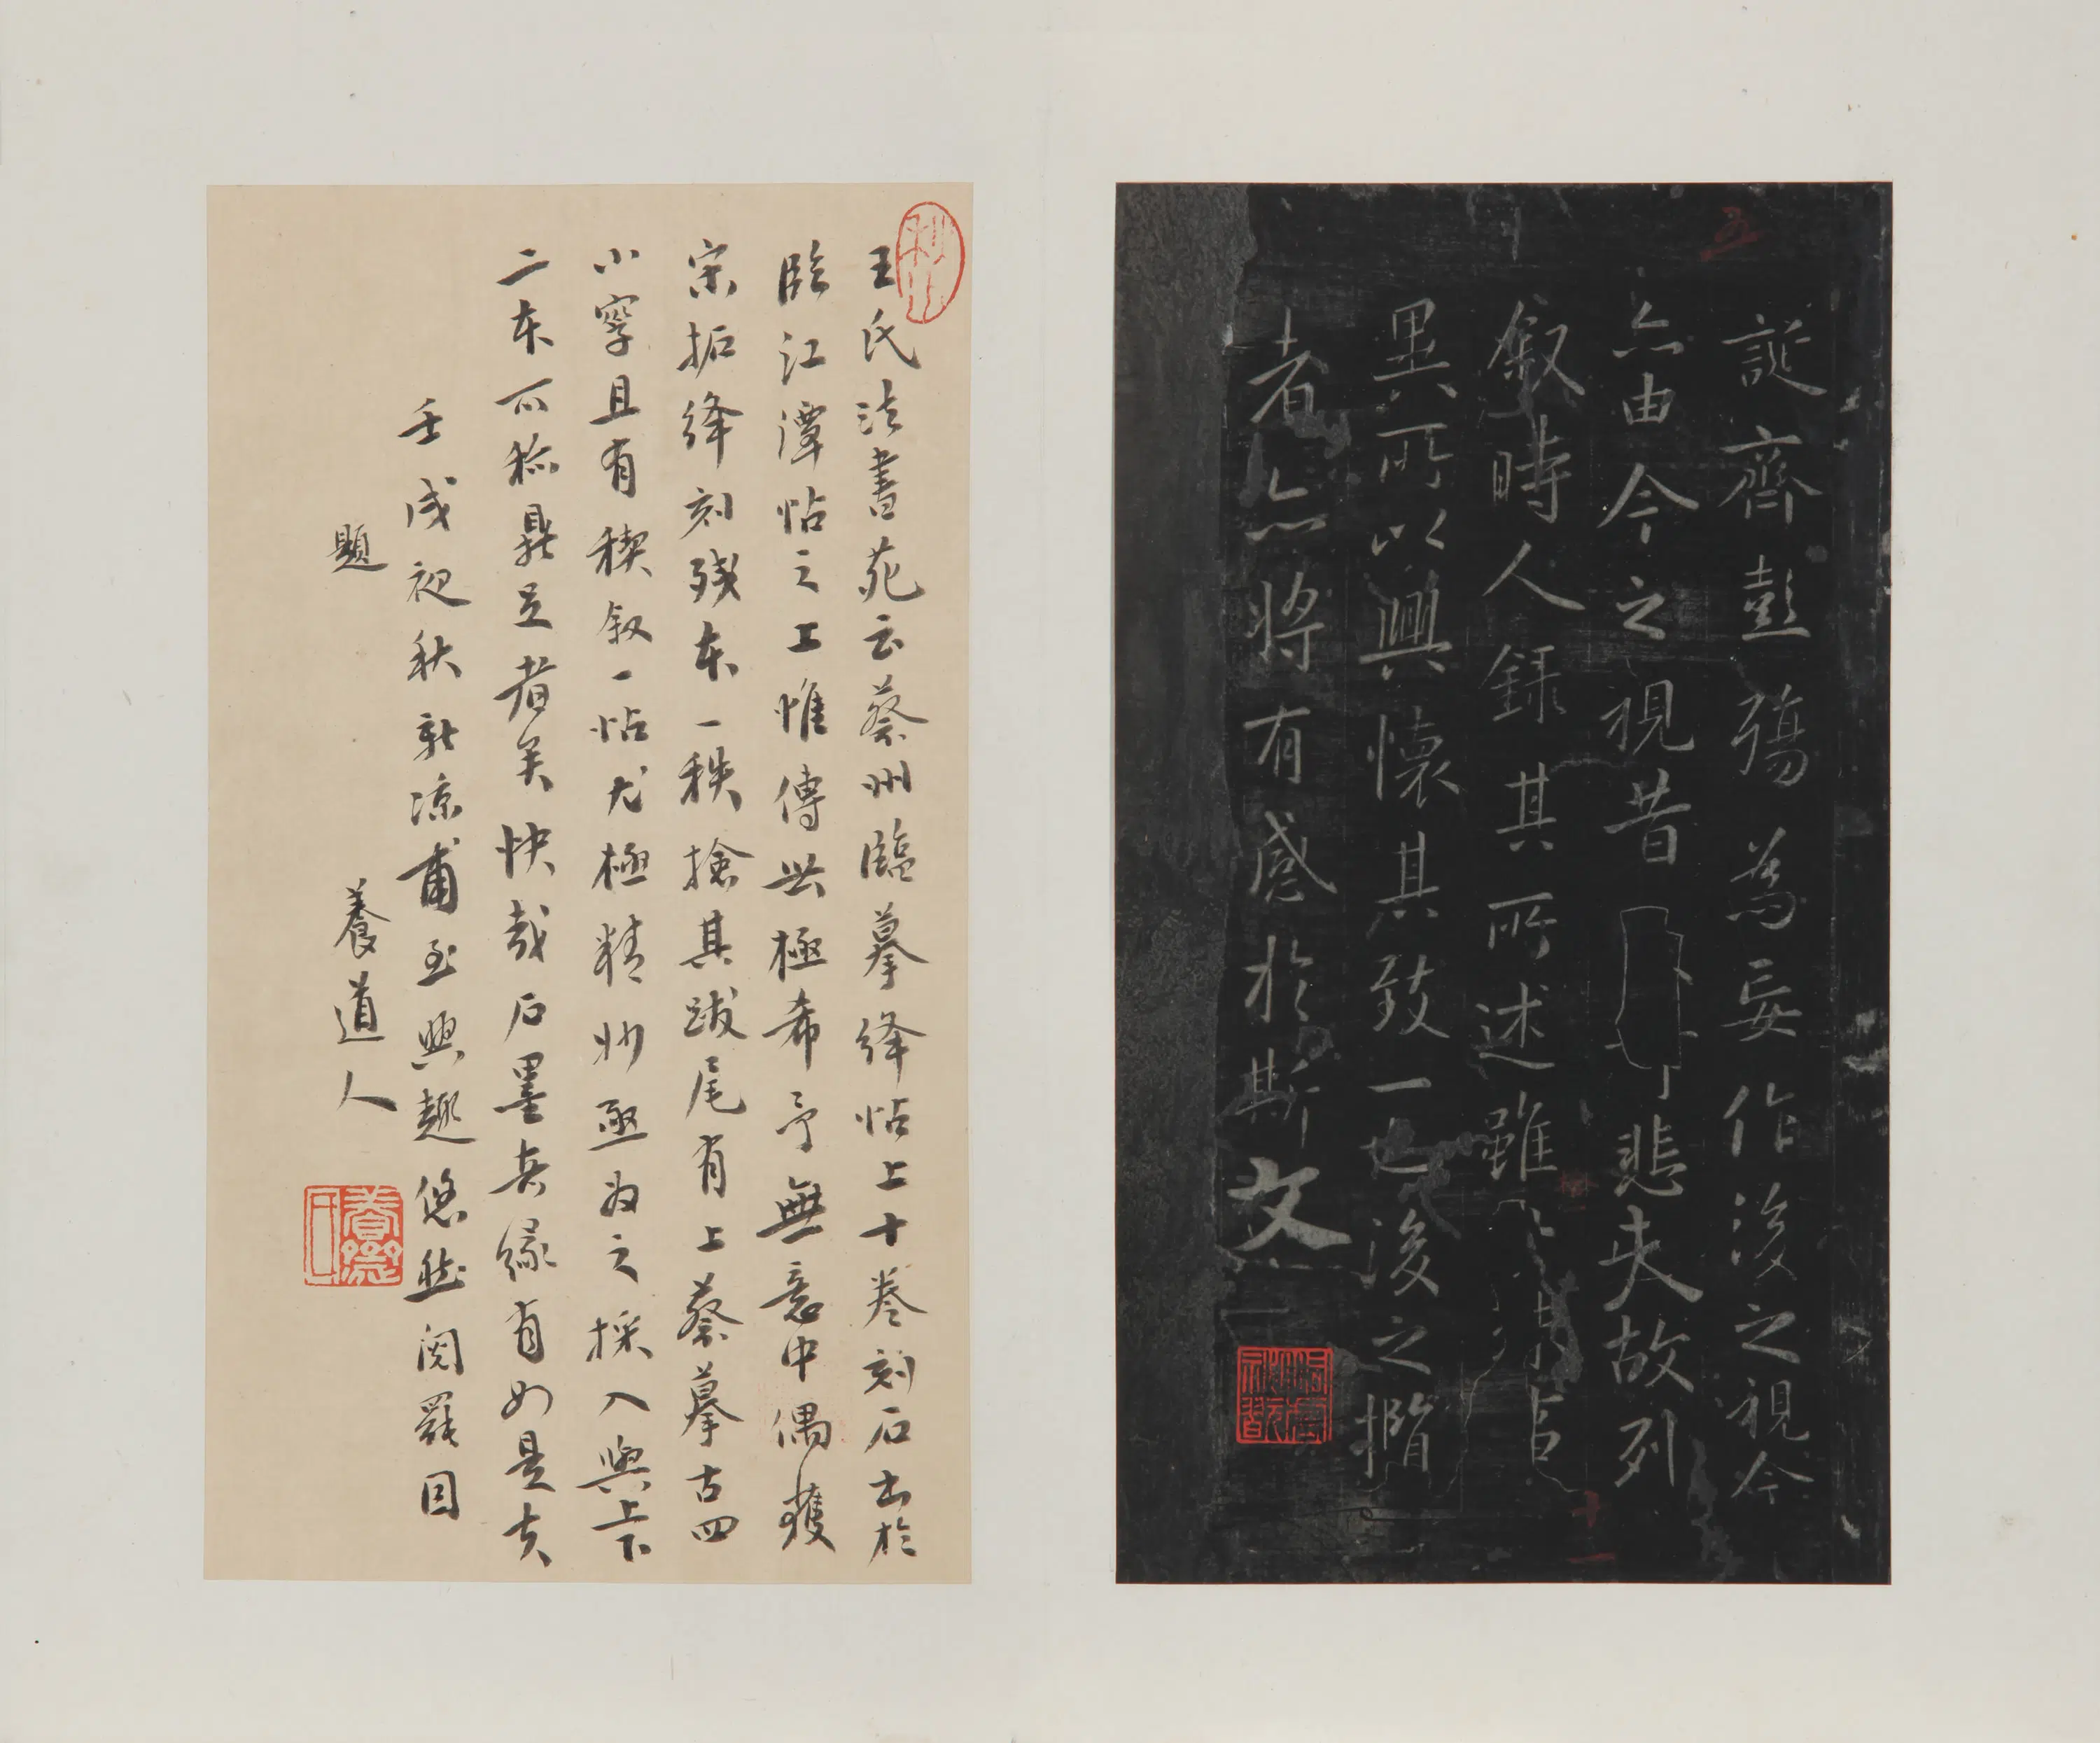 五
誕齊彭殤為妄作後之視今
亦由今之視昔悲夫故列
叙時人録其所述雖
異所以興懷其致一也後之攬
者亦將有感於斯文
十一
王氏法書苑云蔡州臨摹絳帖上十卷刻石出於
臨江潭帖之上惟傳世極希予無意中偶獲
宋拓絳刻殘本一秩撿其跋尾有上蔡摹古四
小字且有稧叙一帖尤極精妙亟為之採入與上下
二本而稱鼎足者矣快哉石墨奇緣有如是夫
壬戌初秋新涼甫至興趣悠然閱羅目
題
養道人